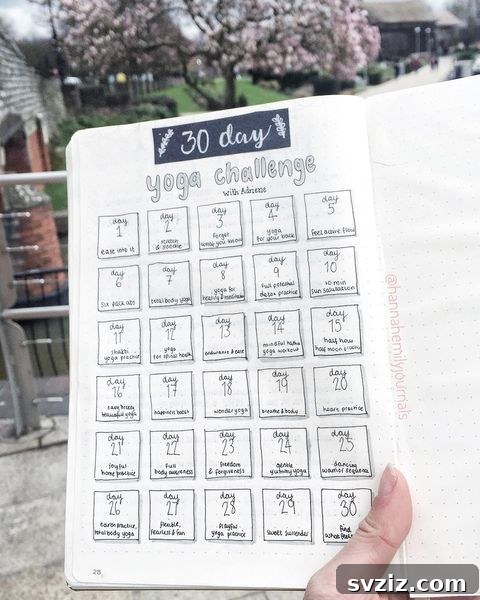 30 day
yoga challenge
with Adriene
day
1
ease into it
day
2
stretch
& soothe
day
3
forget
what you know
day
4
yoga
for your back
day
5
feel alive flow
day
6
six pack abs
day
7
total body yoga
day
8
yoga for
healing & meditation
day
9
full potential
detox practice
day
10
10 min
sun salutation
day
11
shakti
yoga practice
day
12
yoga
for
day
13
endurance & ease
day
14
mindful hatha
yoga workout
day
15
half hour
half moon practice
day
16
easy breezy
beautiful yoga
day
17
happiness boost
day
18
wonder yoga
day
19
breathe & body
day
20
heart practice
day
21
joyful
home practice
day
22
full
body awareness
day
23
freedom
& forgiveness
day
24
gentle
yummy yoga
day
25
dancing
warrior sequence
day
26
earth practice,
total body yoga
day
27
flexible,
fearless & fun
day
28
playful
yoga practice
day
29
sweet surrender
day
30
find
what feels
28
@hannahemilyjournals
svziz.com